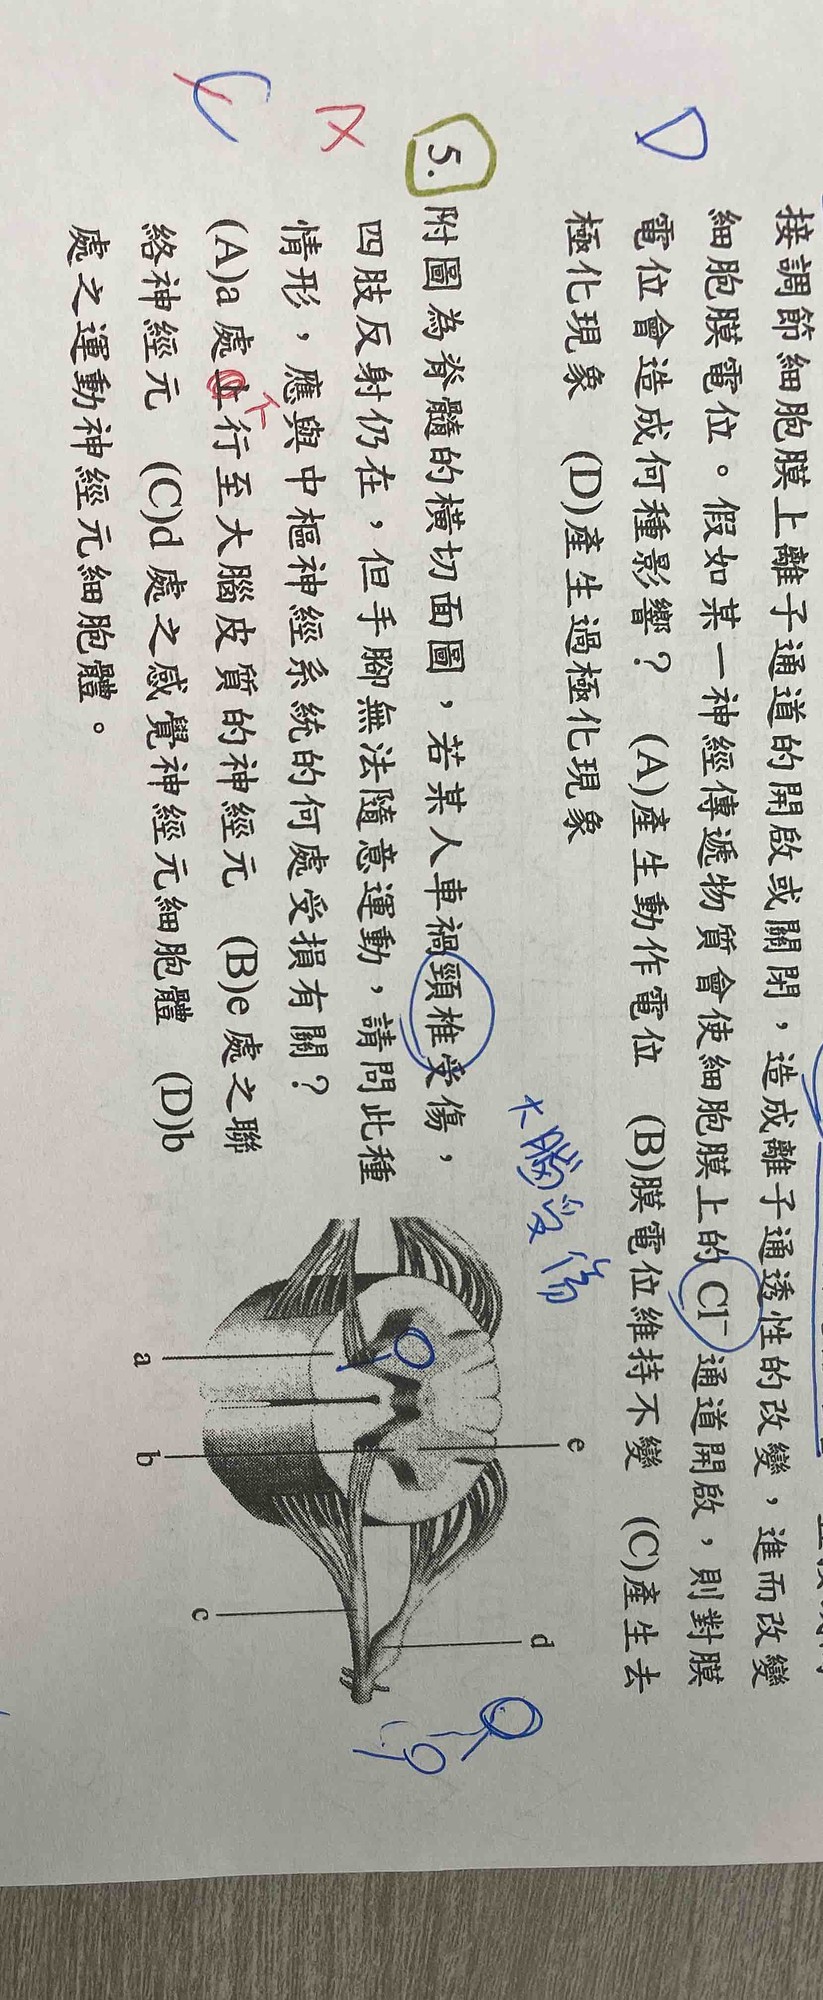 接調節細胞膜上離子通道的開啟或關閉，造成離子通透性的改變，進而改變
細胞膜電位。假如某一神經傳遞物質會使細胞膜上的 Cl⁻ 通道開啟，則對膜
D
電位會造成何種影響？ (A)產生動作電位 (B)膜電位維持不變 (C)產生去
極化現象 (D)產生過極化現象
大腦受傷
5. 附圖為脊髓的橫切面圖，若某人車禍頸椎受傷，
四肢反射仍在，但手腳無法隨意運動，請問此種
情形，應與中樞神經系統的何處受損有關？
C
(A)a 處上行至大腦皮質的神經元 (B)e 處之聯
下
絡神經元 (C)d 處之感覺神經元細胞體 (D)b
處之運動神經元細胞體。
e
d
a
b
c